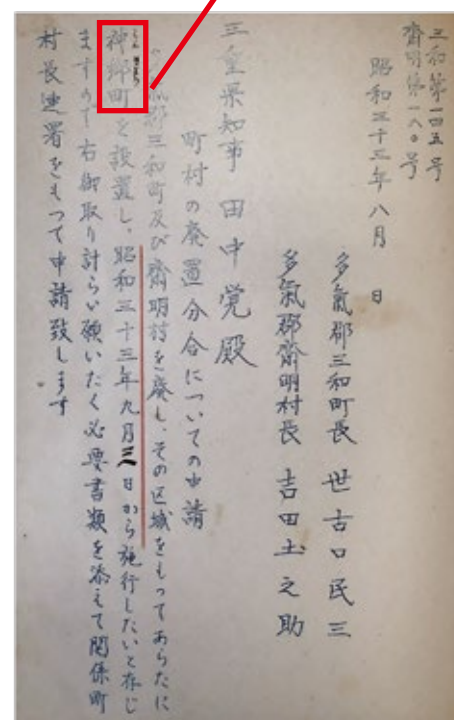 三和第一四五号
齋明第一八〇号
昭和三十三年八月　日
多氣郡三和町長　世古口民三
多氣郡齋明村長　吉田士之助
三重県知事　田中覚殿
町村の廃置分合についての申請
郡三和町及び齋明村を廃し、その区域をもってあらたに
神郷町を設置し、昭和三十三年九月三日から施行したいと存じ
ますので右御取り計らい願いたく必要書類を添えて関係町
村長連署をもって申請致します